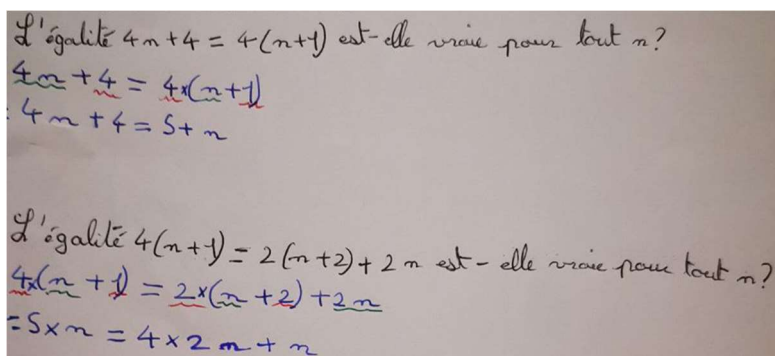 L'égalité 4n+4 = 4(n+1) est-elle vraie pour tout n?
4n + 4 = 4×(n+1)
: 4n + 4 = 5+ n
L'égalité 4(n+1) = 2(n+2) + 2n est-elle vraie pour tout n?
4×(n + 1) = 2×(n + 2) + 2n
= 5×n = 4×2n + n